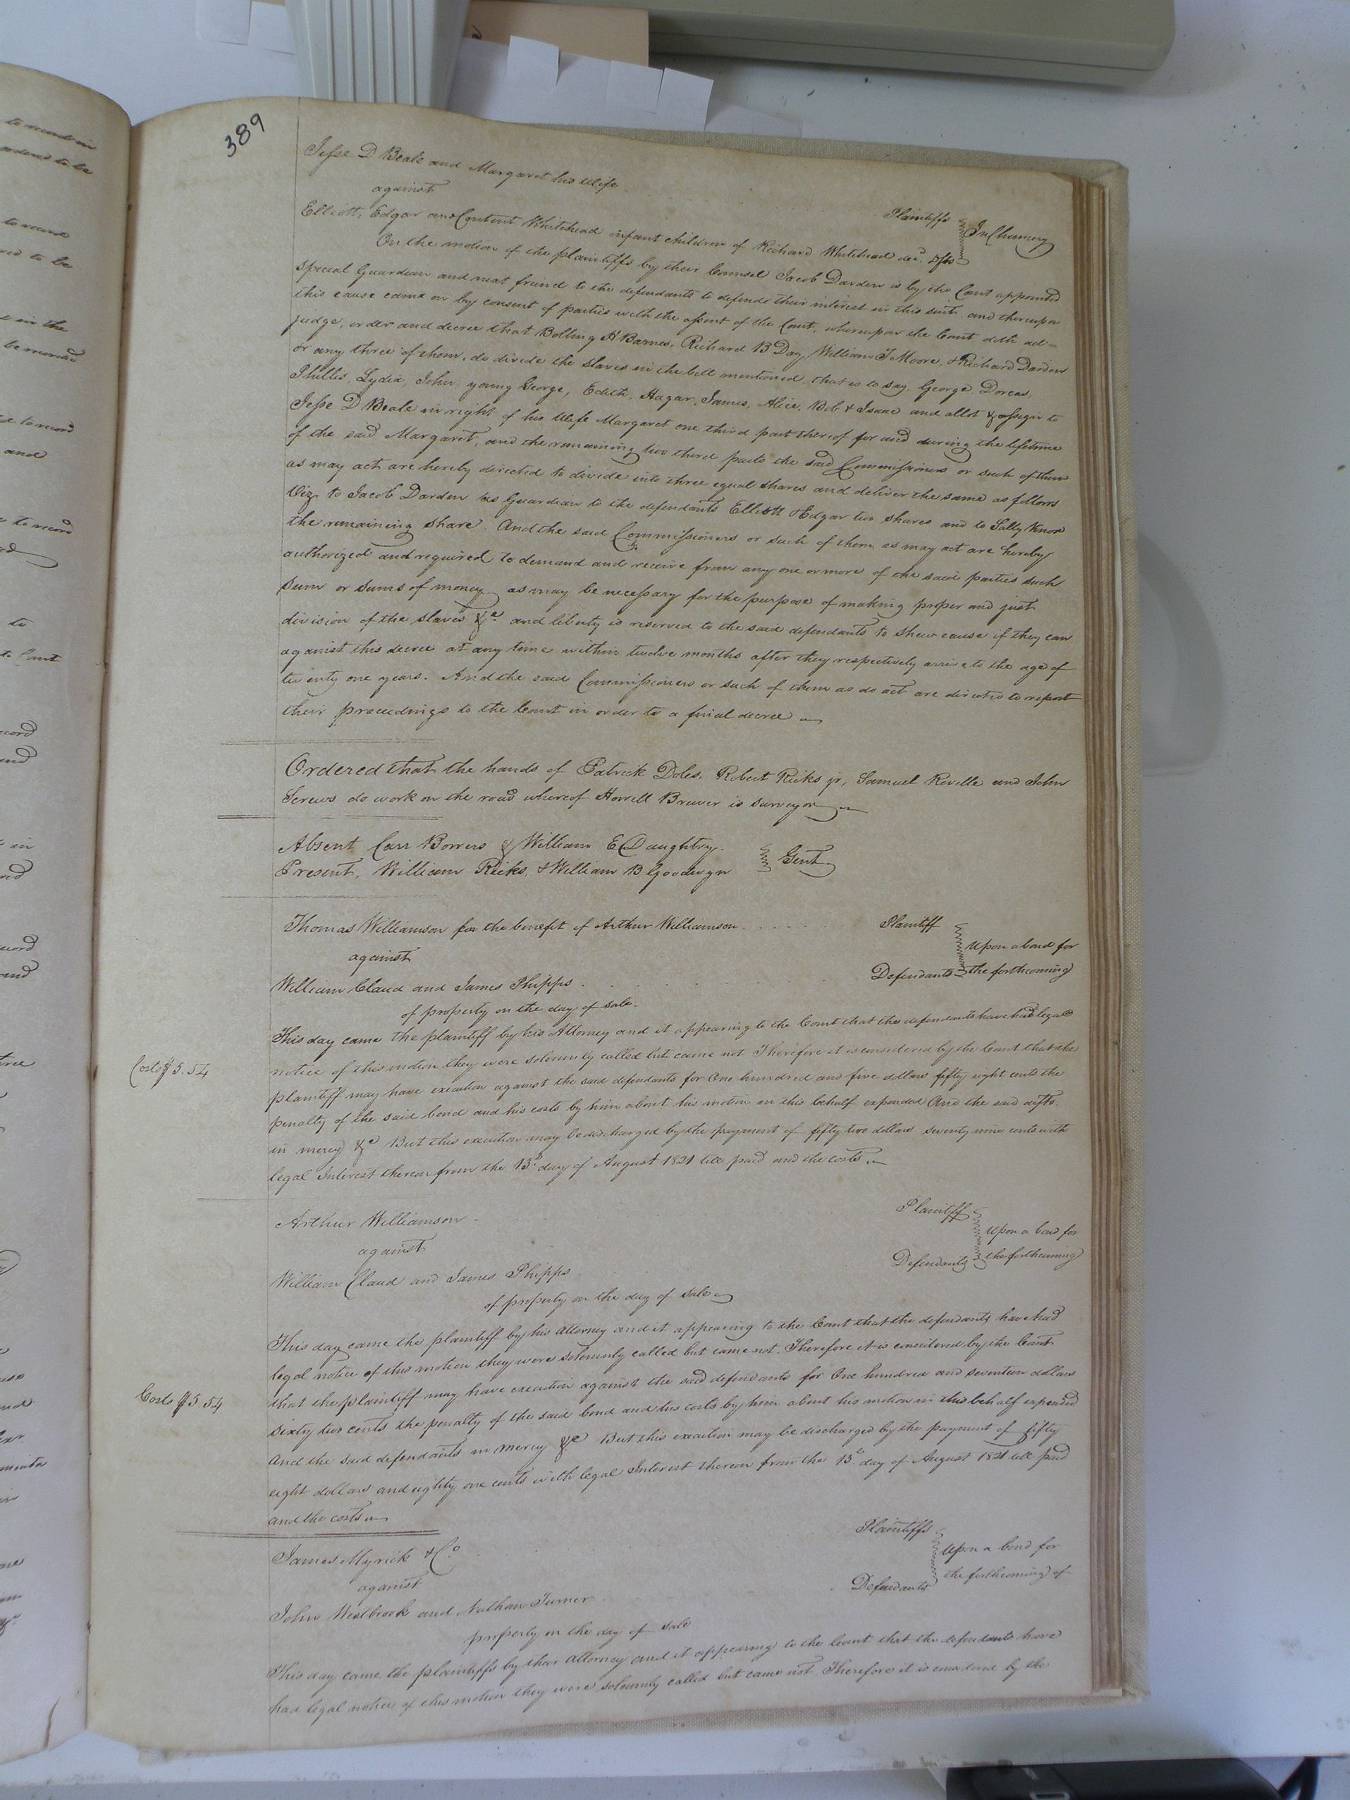 389
Jesse D Beale and Margaret his Wife Plaintiffs
against In Chancery
Elliott, Edgar and Content Whitehead infant children of Richard Whitehead decd. Defts
On the motion of the plaintiffs by their Counsel Jacob Darden is by the Court appointed
special Guardian and next friend to the defendants to defend their interest in this suit and thereupon
this cause came on by consent of parties with the assent of the Court, whereupon the Court doth ad-
judge, order and decree that Bolling H Barnes, Richard B Day, William T Moore, & Richard Darden
or any three of them, do divide the slaves in the bill mentioned, that is to say, George, Dorcas,
Phillis, Lydia, John, young George, Edith, Hagar, James, Alice, Bob & Isaac and allot & assign to
Jesse D Beale in right of his Wife Margaret one third part thereof for and during the lifetime
of the said Margaret, and the remaining two third parts the said Commissioners or such of them
as may act are hereby directed to divide into three equal shares and deliver the same as follows
Viz, to Jacob Darden as Guardian to the defendants Elliott & Edgar two shares and to Sally
the remaining share. And the said Commissioners or such of them as may act are hereby
authorized and required to demand and receive from any one or more of the said parties such
sum or sums of money as may be necessary for the purpose of making proper and just
division of the slaves &c. and liberty is reserved to the said defendants to shew cause if they can
against this decree at any time within twelve months after they respectively arrive to the age of
twenty one years. And the said Commissioners or such of them as do act are directed to report
their proceedings to the Court in order to a final decree
Ordered that the hands of Patrick Doles, Robert Ricks jr, Samuel Reville and John
Screws do work on the road whereof Howell Bruver is surveyor
Absent, Carr Bowers & William E Daughtry.
Present, William Ricks, & William B Goodwyn Gent
Thomas Williamson for the benefit of Arthur Williamson Plaintiff
against Upon a bond for
William Claud and James Phipps Defendants the forthcoming
of property on the day of sale.
This day came the plaintiff by his Attorney and it appearing to the Court that the defendants have had legal
notice of this motion they were solemnly called but came not Therefore it is considered by the Court that the
Costs $5.54
plaintiff may have execution against the said defendants for One hundred and five dollars fifty eight cents the
penalty of the said bond and his costs by him about his motion in this behalf expended And the said defts.
in mercy &c But this execution may be discharged by the payment of fifty two dollars seventy nine cents with
legal Interest thereon from the 13th day of August 1821 till paid and the costs
Arthur Williamson Plaintiff
against Upon a bond for
William Claud and James Phipps Defendants the forthcoming
of property on the day of sale
This day came the plaintiff by his Attorney and it appearing to the Court that the defendants have had
legal notice of this motion they were solemnly called but came not. Therefore it is considered by the Court
that the plaintiff may have execution against the said defendants for One hundred and seventeen dollars
Costs $5.54
sixty two cents the penalty of the said bond and his costs by him about his motion in this behalf expended
And the said defendants in mercy &c But this execution may be discharged by the payment of fifty
eight dollars and eighty one cents with legal Interest thereon from the 13th day of August 1821 till paid
and the costs
James Myrick & Co. Plaintiffs
against Upon a bond for
John Westbrook and Nathan Turner Defendants the forthcoming of
property on the day of sale
This day came the plaintiffs by their Attorney and it appearing to the Court that the defendants have
had legal notice of this motion they were solemnly called but came not. Therefore it is considered by the